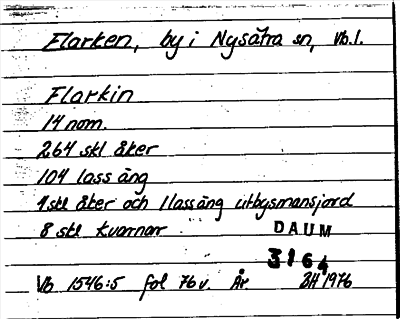 Flarken, by i Nysätra sn, Vb.l.
Flarkin
14 nom.
264 skl åker
104 lass äng
1 skl åker och 1 lass äng utbysmansjord
8 skl kvarnar
DAUM
3164
Vb 1546:5 fol 76 v. År. BH 1976